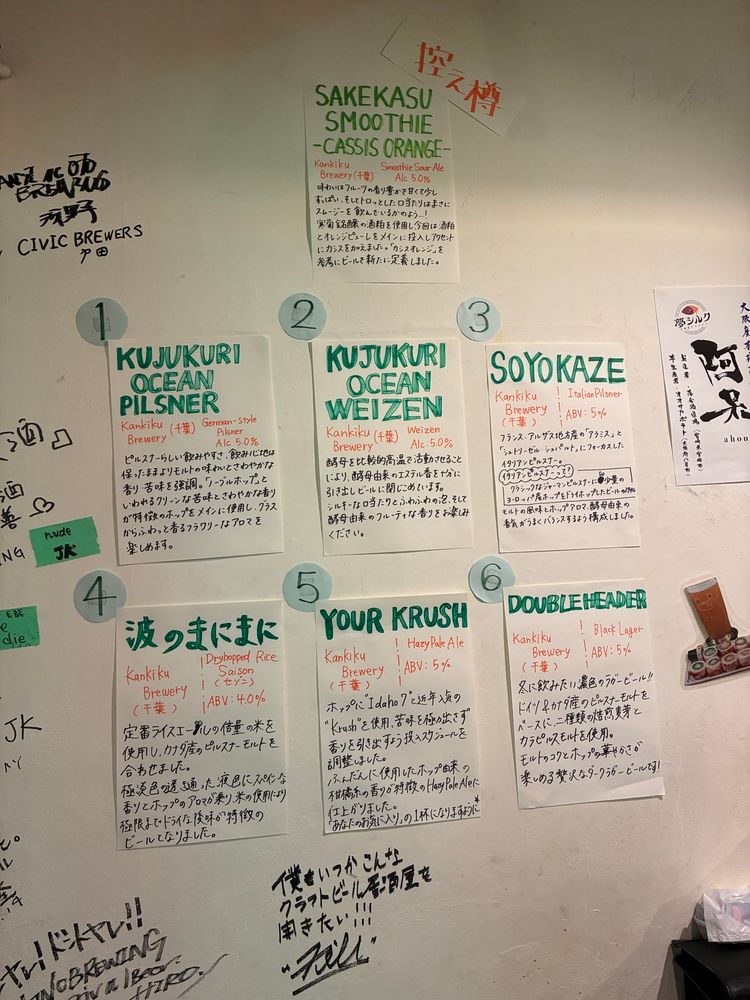 控え樽
SAKEKASU
SMOOTHIE
-CASSIS ORANGE-
Kankiku
Brewery (千葉)
Smoothie Sour Ale
Alc 5.0%
味わいはフルーツの香り豊かで甘くて少し
すっぱい、そしてトロッとした口当たりはまさに
スムージーを飲んでいるかのよう…!
寒菊銘醸の酒粕を使用し今回は酒粕
とオレンジピューレをメインに投入しアクセント
にカシスを加えました。「カシスオレンジ」を
参考にビールで新たに定義しました。
河野
CIVIC BREWERS
戸田
1
KUJUKURI
OCEAN
PILSNER
Kankiku (千葉)
Brewery
German-style
Pilsner
Alc 5.0%
ピルスナーらしい飲みやすさ、飲みごたえは
保ったままよりモルトの味わいとさわやかな
香り苦味を強調。ノーブルホップと
いわれるクリーンな苦味とさわやかな香り
が特徴のホップをメインに使用し、グラス
からふわっと香るフラワリーなアロマを
楽しめます。
2
KUJUKURI
OCEAN
WEIZEN
Kankiku (千葉)
Brewery
Weizen
Alc. 5.0%
酵母を比較的高温で活動させること
により、酵母由来のエステル香を十分に
引き出しビールに閉じこめています。
シルキーな口当たりとふわふわの泡、そして
酵母由来のフルーティな香りをお楽しみ
ください。
3
SOYOKAZE
Kankiku
Brewery
(千葉)
Italian Pilsner
ABV: 5%
フランス・アルザス地方産の「アラミス」と
「シュトリーゼル・シュパルト」にフォーカスした
イタリアンピルスナー。
イタリアンピルスナーって?
クラシックなジャーマンピルスナーに少量の
ヨーロッパ産ホップをドライホップしたビール
モルトの風味とホップアロマ、酵母由来の
香気がうまくバランスするよう構成しました。
4
波のまにまに
Kankiku
Brewery
(千葉)
Dryhopped Rice
Saison
(セゾン)
ABV: 4.0%
定番ライスエールの倍量の米を
使用し、カナダ産のピルスナーモルトを
合わせました。
極淡色の透き通った液色にスパイシーな
香りとホップのアロマが乗り、米の使用により
極限までドライな後味が特徴の
ビールとなりました。
5
YOUR KRUSH
Kankiku
Brewery
(千葉)
Hazy Pale Ale
ABV: 5%
ホップに"Idaho 7"と近年人気の
"Krush"を使用、苦味を極力出さず
香りを引き出すよう投入スケジュールを
調整しました。
ふんだんに使用したホップ由来の
柑橘系の香りが特徴のHazy Pale Aleに
仕上がりました。
「あなたのお気に入り」の1杯になりますように
6
DOUBLE HEADER
Kankiku
Brewery
(千葉)
Black Lager
ABV: 5%
冬に飲みたい濃色のラガービール!!
ドイツ&カナダ産のピルスナーモルトを
ベースに、二種類の焙煎麦芽と
カラピルスモルトを使用。
モルトのコクとホップの華やかさが
楽しめる贅沢なダークラガービールです!
nude
JK
die
JK
夢シルク
阿呆
ahou
僕もいつかこんな
クラフトビール居酒屋を
開きたい!!!